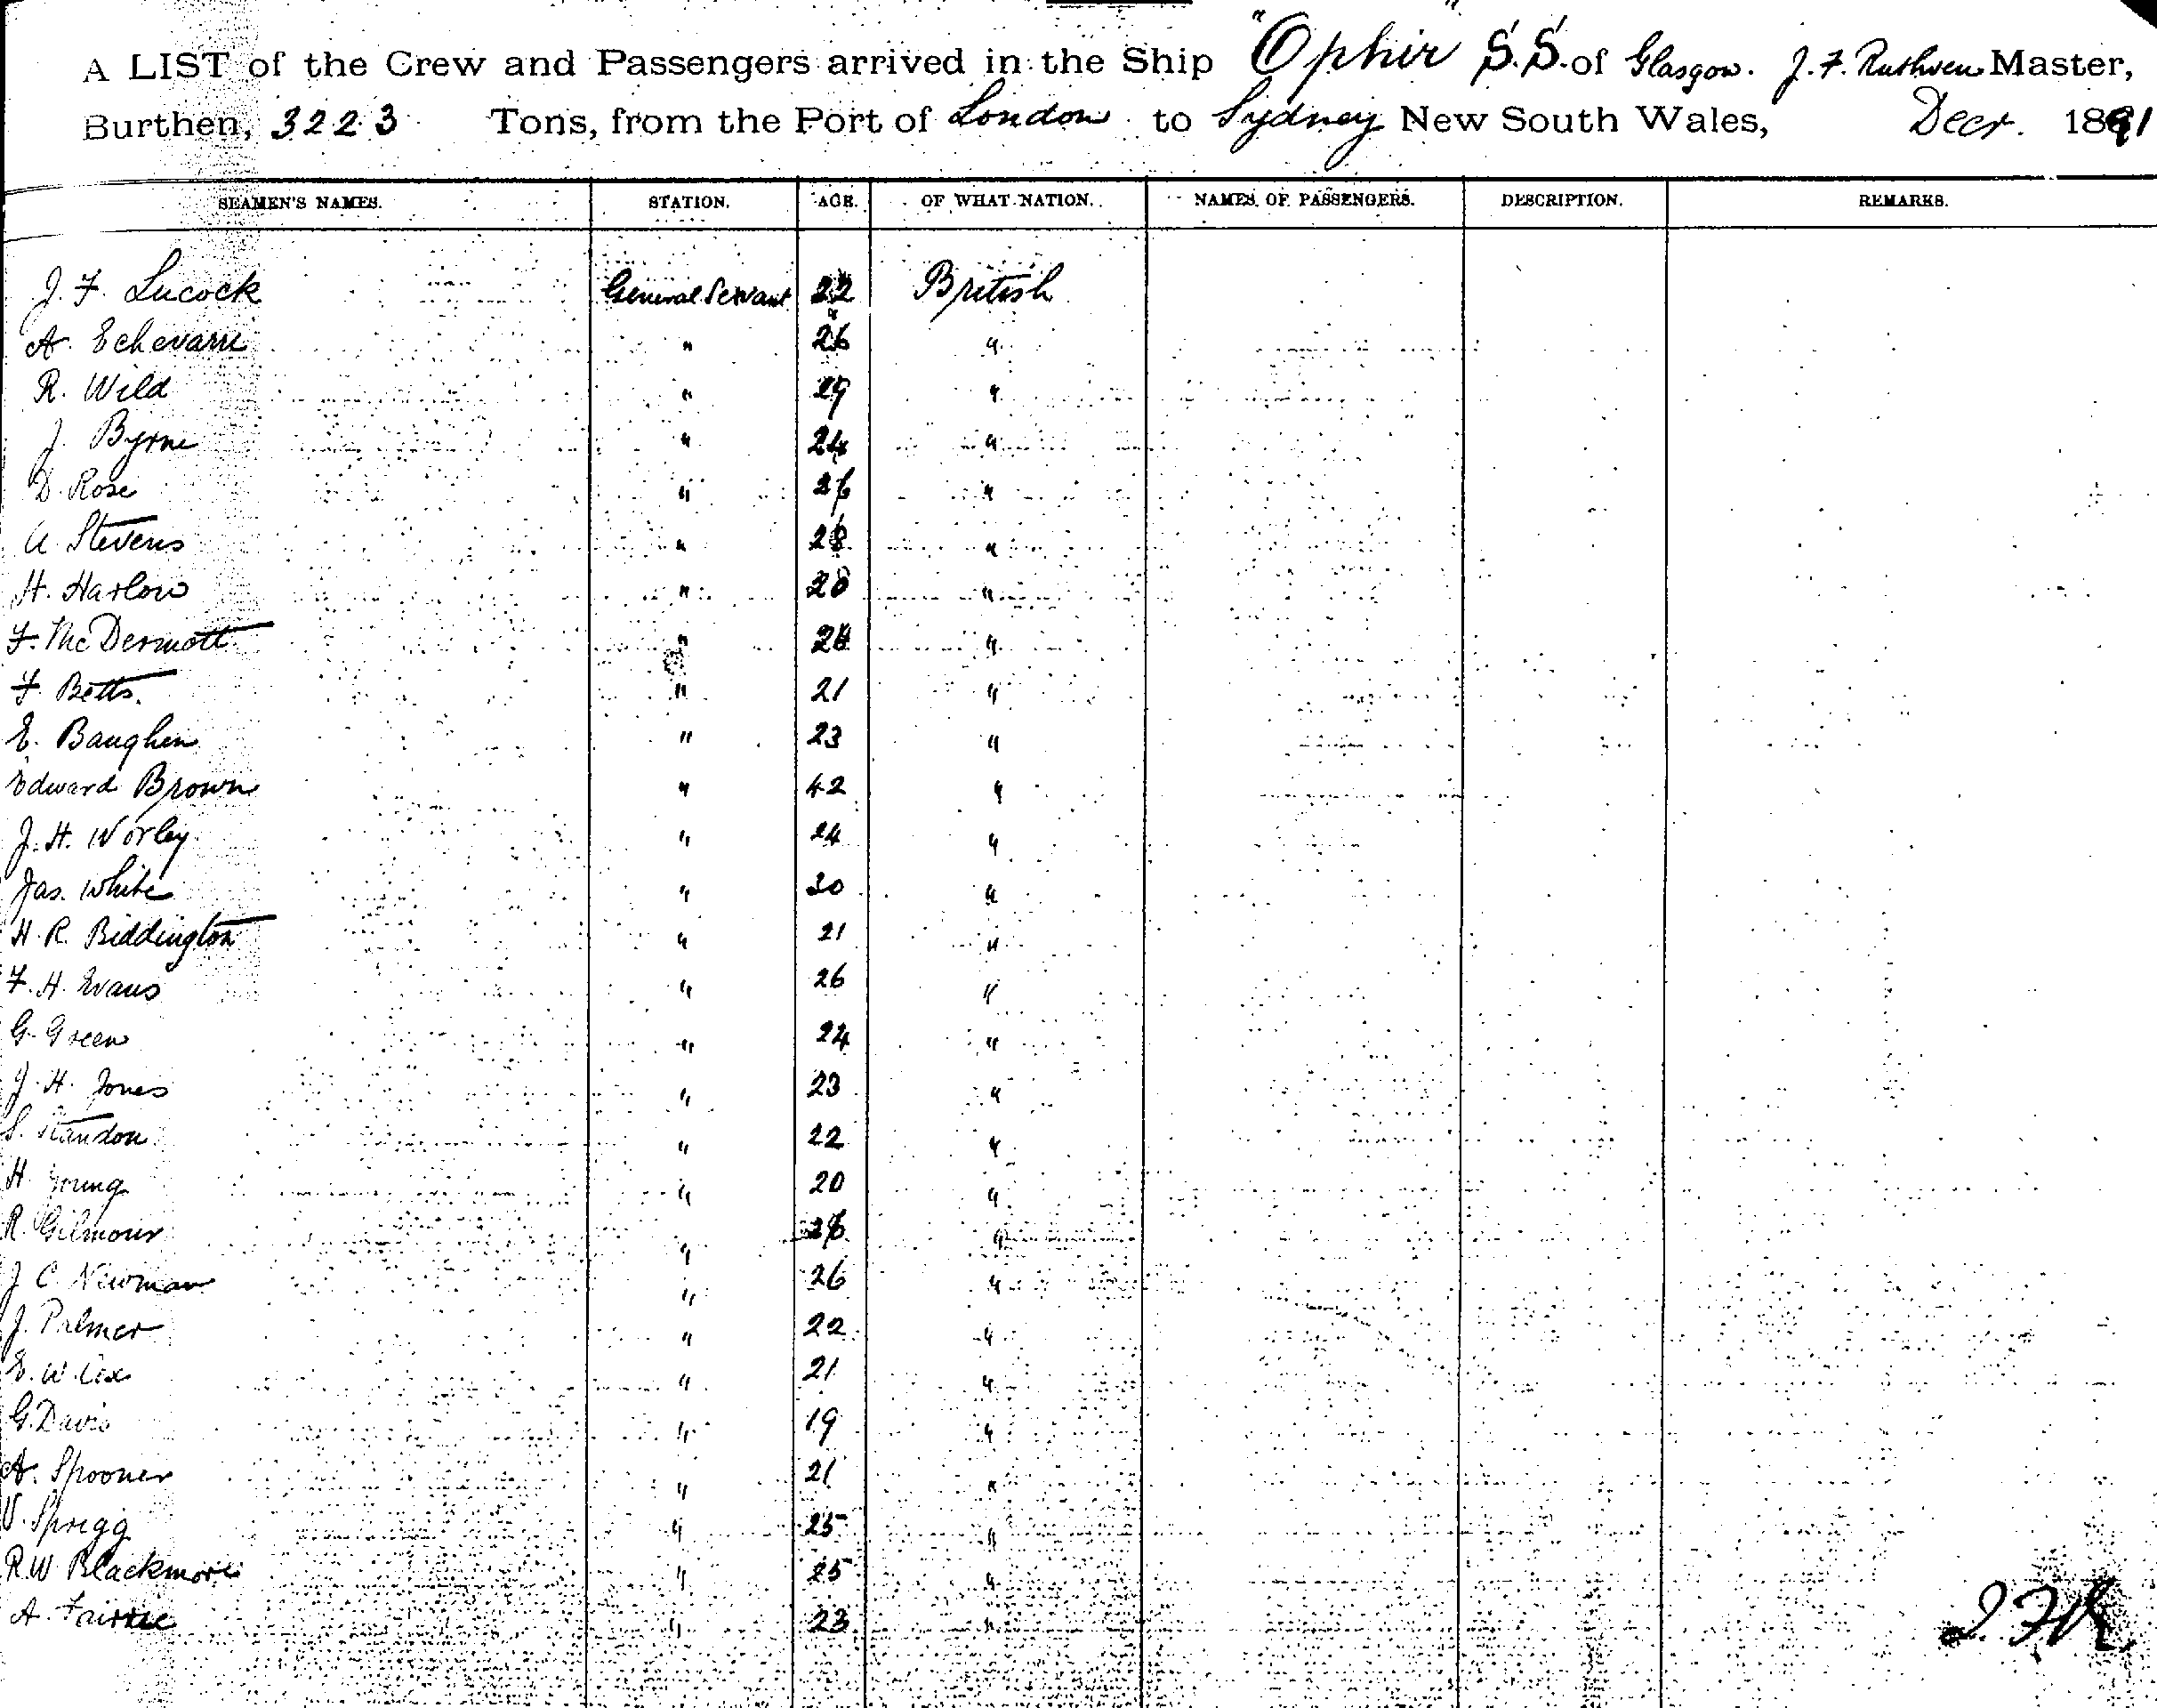 A LIST of the Crew and Passengers arrived in the Ship "Ophir" S.S. of Glasgow. J. F. Ruthven Master,
Burthen, 3223 Tons, from the Port of London to Sydney New South Wales, Decr. 1891
SEAMEN'S NAMES. STATION. AGE. OF WHAT NATION. NAMES OF PASSENGERS. DESCRIPTION. REMARKS.
J. F. Lucock General Servant 22 British
A. Echevarri " 26 "
R. Wild " 29 "
J. Byrne " 24 "
D. Rose " 26 "
A. Stevens " 28 "
H. Harlow " 20 "
F. McDermott " "
F. Betts. " 21 "
E. Baughen " 23 "
Edward Brown " 42 "
J. H. Worley " 24 "
Jas. White " 20 "
H. R. Biddington " 21 "
F. H. Evans " 26 "
G. Green " 24 "
J. H. Jones " 23 "
S. Standon " 22 "
H. Young " 20 "
R. Gilmour " "
J C. Newman " 26 "
J. Palmer " 22 "
E. W. Cox " 21 "
G. Davis " 19 "
A. Spooner " 21 "
Sprigg " 25 "
R. W Blackmore " 25 "
A. Fairlie " 23 "
J. F. R.